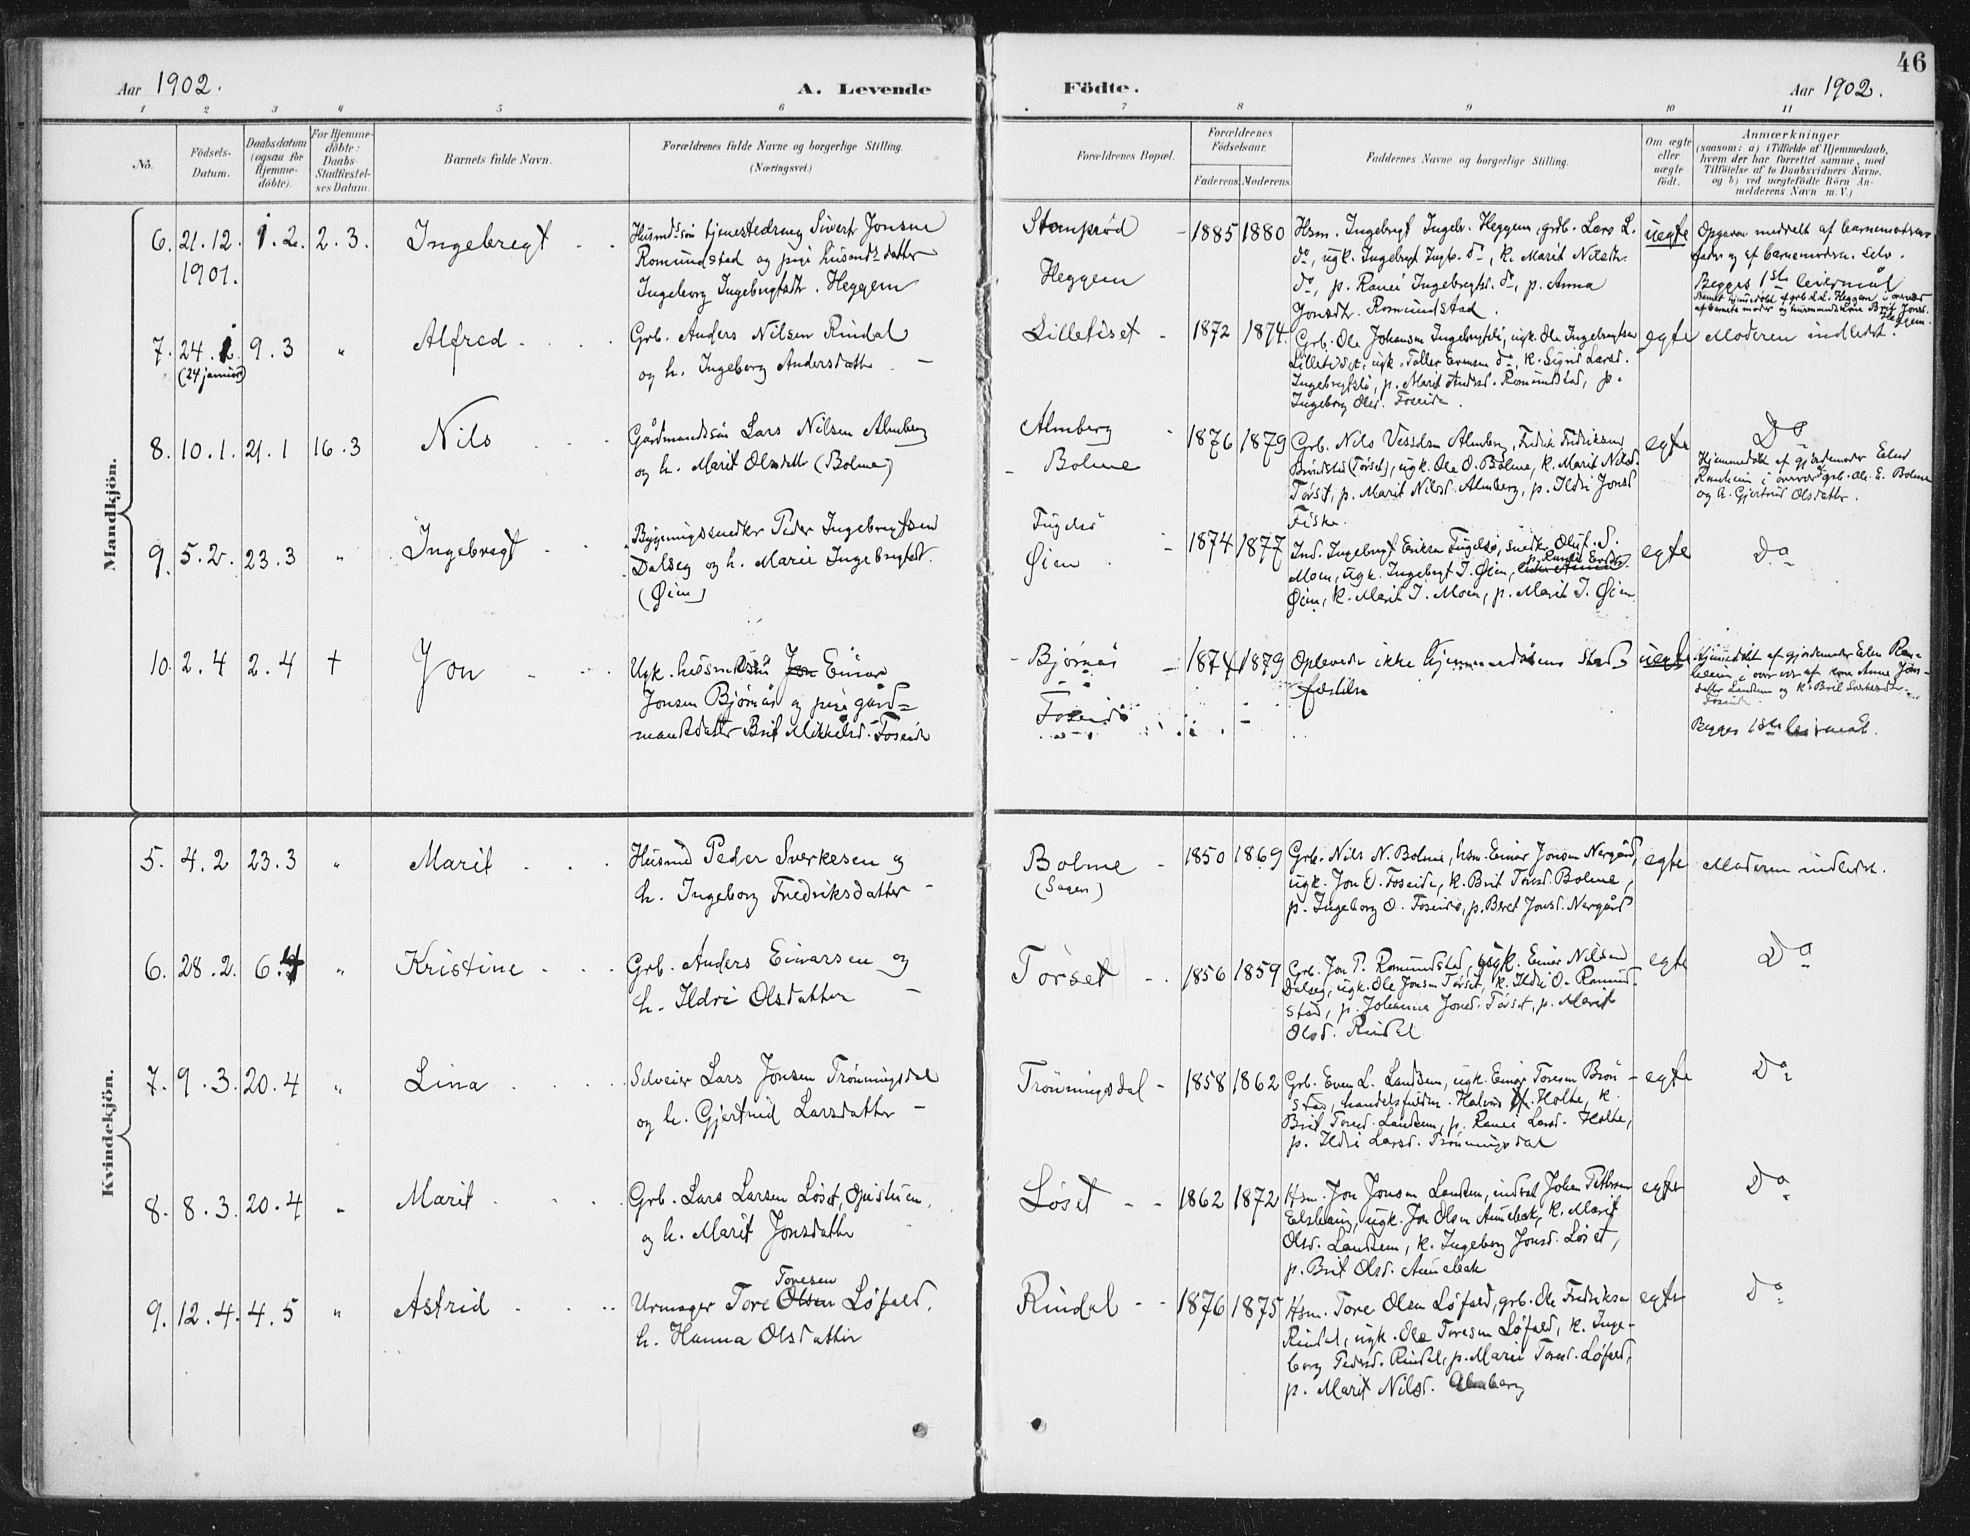 46
Aar 1902.
A. Levende
Födte.
Aar 1902.
1 2 3 4 5 6 7 8 9 10 11
No.
Födsels-
Datum.
Daabsdatum
(ogsaa for
Hjemme-
döbte).
For Hjemme-
döbte:
Daabs-
Stadfæstel-
ses Datum.
Barnets fulde Navn.
Forældrenes fulde Navne og borgerlige Stilling.
(Næringsvei.)
Forældrenes Bopæl.
Forældrenes
Födselsaar.
Faderens. Moderens.
Faddernes Navne og borgerlige Stilling.
Om ægte
eller
uægte
födt.
Anmærkninger
(saasom: a) i Tilfælde af Hjemmedaab,
hvem der har forrettet samme, med
Tilföielse af to Daabsvidners Navne.
og b) ved uægtefödte Börn An-
melderens Navn m. V.)
Mandkjön.
6. 21.12. 1901. 1.2. 2.3. Ingebregt
Husmdssön tjenestedreng Sivert Jonsen
Romundstad og pige husmdsdatter
Ingeborg Ingebrigtsdtr. Heggem
Heggem
1885 1880
Hsm. Ingebrigt Ingebr. Heggem, grb. Lars L.
do, ugk. Ingebrigt Ingb. do, k. Marit Nilsdtr.
do, p. Ranei Ingebrigtsd. do, p. Anna
Jonsdt. Romundstad.
uegte
Opgaven meddelt af barnemoderens
fader og af barnemoderen selv.
Begges 1ste leiermål
7. 24.1. (24 januar) 9.3 " Alfred
Grb. Anders Nilsen Rindal
og h. Ingeborg Andersdatter
Lilletiset
1872 1874.
Grb. Ole Johansen Ingebrigtsli, ugk. Ole Ingebrigtsen
Lilletiset, ugk. Toller Evensen do, k. Sigrid Larsd.
Ingebrigtsli, p. Marit Andersd. Romundstad, p.
Ingeborg Olsd. Foseide.
egte
Moderen indledet.
8. 10.1. 21.1 16.3 Nils
Gårdmandssön Lars Nilsen Almberg
og h. Marit Olsdatter (Bolme)
Almberg
Bolme
1876 1879
Grb. Nils Vesselsen Almberg, Fredrik Fredriksen
Brönstad (Törset), ugk. Ole O. Bolme, k. Marit Nilsd.
Törset, p. Marit Nilsd. Almberg, p. Ildri Jonsd
Fiske.
egte
Do
Hjemmedöbt af gjordemoder Eelen
Ranheim i overvær af grb. Ole E. Bolme
og h. Gjertrud Olsdatter.
9. 5.2. 23.3 " Ingebregt
Bygningssnedker Peder Ingebrigtsen
Dalseg og h. Marie Ingebrigtsdt.
(Øien)
Fugelsö
Øien
1874 1877
Ind. Ingebrigt Eriksen Fugelsö, snedker Oluf S.
Moen, ugk. Ingebrigt I. Øien,
Øien, k. Marit I. Moen, p. Marit I. Øien
egte
Do
10. 2.4 2.4 + Jon
Ugk. husmandssön Jon Einar
Jonsen Bjørnås og pige gård=
mandsdatter Brit Mikkelsd. Foseide
Bjørnås
Foseide
1874 1879
Oplevede ikke hjemmedåbens Stad=
fæstelse
uegte
Hjemmedöbt af gjordemoder Elen Ran=
heim i overvær af kone Anne Jons=
datter Landsem og k. Brit Sverkesdtr.
Foseide
Begges 1ste leiermål.
Kvindekjön.
5. 4.2 23.3 " Marit
Husmd Peder Sverkesen og
h. Ingeborg Fredriksdatter
Bolme
(Sagen)
1850 1869
Grb. Nils N. Bolme, hsm. Einar Jonsen Nergård,
ugk. Jon O. Foseide, k. Brit Toresd. Bolme,
p. Ingeborg O. Foseide, p. Beret Jonsd. Nergård
egte
Moderen indledet.
6. 28.2. 6.4 " Kristine
Grb. Anders Einarsen og
h. Ildri Olsdatter
Törset
1856 1859
Grb. Jon P. Romundstad, ugk. Einar Nilsen
Dalseg, ugk. Ole Jonsen Törset, k. Ildri O. Romund=
stad, p. Johanna Jonsd. Törset, p. Marit
Olsd. Rindal
egte
Do
7. 9.3. 20.4 " Lina
Selveier Lars Jonsen Trönningsdal
og h. Gjertrud Larsdatter
Trönningsdal
1858 1862
Grb. Even L. Landsem, ugk. Einar Toresen Brön=
stad, handelsfuldm. Halvor H. Holte, k.
Brit Toresd. Landsem, p. Ranei Larsd. Holte,
p. Ildri Larsd. Trönningsdal
egte
Do
8. 8.3. 20.4 " Marit
Grb. Lars Larsen Löset,
og h. Marit Jonsdatter
Löset
1862 1872
Hsm. Jon Jonsen Landsem, Johan Pettersen
ugk. Jon Olsen Aunebak, k. Marit
Olsd. Landsem, k. Ingeborg Jonsd. Löset,
p. Brit Olsd. Aunebak
egte
Do
9. 12.4. 4.5 " Astrid
Toresen
Urmager Tore Olsen Löfald.
h. Hanna Olsdatter
Rindal
1876 1875
Hsm. Tore Olsen Löfald, grb. Ole Fredriksen
Rindal, ugk. Ole Toresen Löfald, k. Inge=
borg Pedersd. Rindal, p. Marie Toresd. Löfald,
p. Marit Nilsd. Almberg
egte
Do